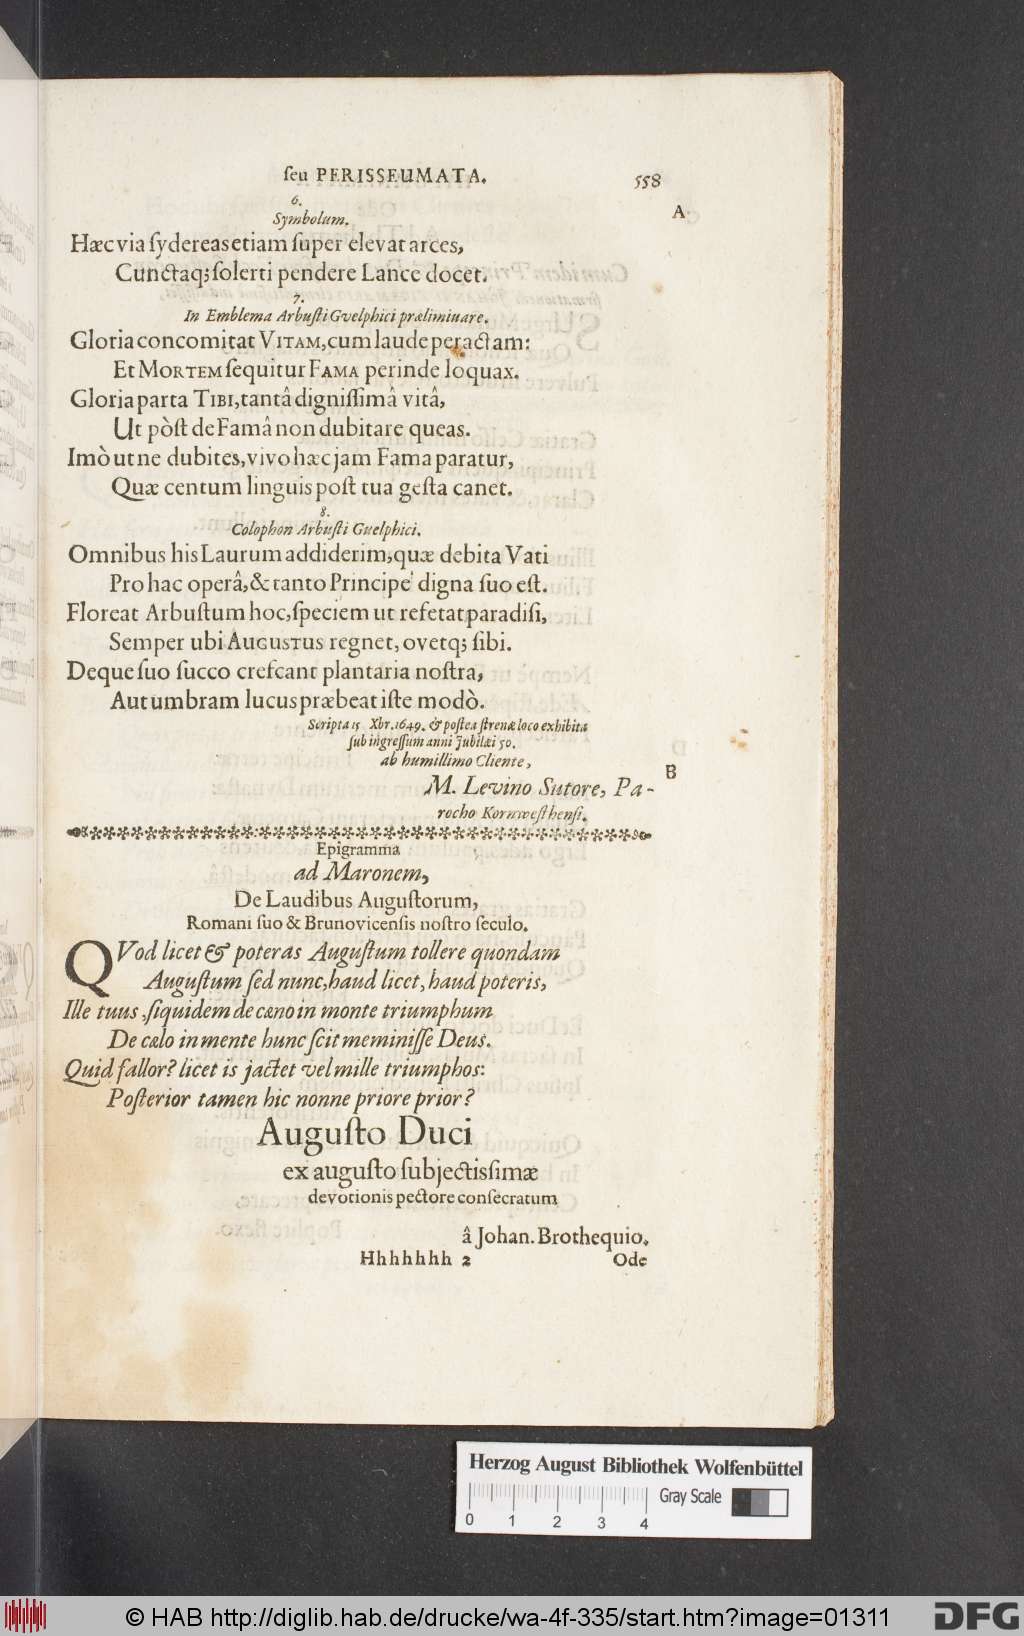 ſeu PERISSEUMATA. 558
6.
A
Symbolum.
Hæc via ſydereas etiam ſuper elevat arces,
Cunctaq; ſolerti pendere Lance docet.
7.
In Emblema Arbuſti Gvelphici præliminare.
Gloria concomitat VITAM, cum laude peractam:
Et MORTEM ſequitur FAMA perinde loquax.
Gloria parta TIBI, tantâ digniſſimâ vitâ,
Ut pòſt de Famâ non dubitare queas.
Imò ut ne dubites, vivo hæc jam Fama paratur,
Quæ centum linguis poſt tua geſta canet.
8.
Colophon Arbuſti Guelphici.
Omnibus his Laurum addiderim, quæ debita Vati
Pro hac operâ, & tanto Principe digna ſuo eſt.
Floreat Arbuſtum hoc, ſpeciem ut refetat paradiſi,
Semper ubi AUGUSTUS regnet, ovetq; ſibi.
Deque ſuo ſucco creſcant plantaria noſtra,
Aut umbram lucus præbeat iſte modò.
Scripta 15 Xbr. 1649. & poſtea ſtrenæ loco exhibita
ſub ingreſſum anni Jubilæi 50.
ab humillimo Cliente,
B
M. Levino Sutore, Pa-
rocho Kornweſthenſi.
Epigramma
ad Maronem,
De Laudibus Auguſtorum,
Romani ſuo & Brunovicenſis noſtro ſeculo.
QVod licet & poteras Auguſtum tollere quondam
Auguſtum ſed nunc, haud licet, haud poteris,
Ille tuus, ſiquidem de cæno in monte triumphum
De cælo in mente hunc ſcit meminiſſe Deus.
Quid fallor? licet is jactet vel mille triumphos:
Poſterior tamen hic nonne priore prior?
Auguſto Duci
ex auguſto ſubjectisſimæ
devotionis pectore conſecratum
â Johan. Brothequio.
Hhhhhhh 2 Ode
Herzog August Bibliothek Wolfenbüttel
Gray Scale
0 1 2 3 4
© HAB http://diglib.hab.de/drucke/wa-4f-335/start.htm?image=01311
DFG